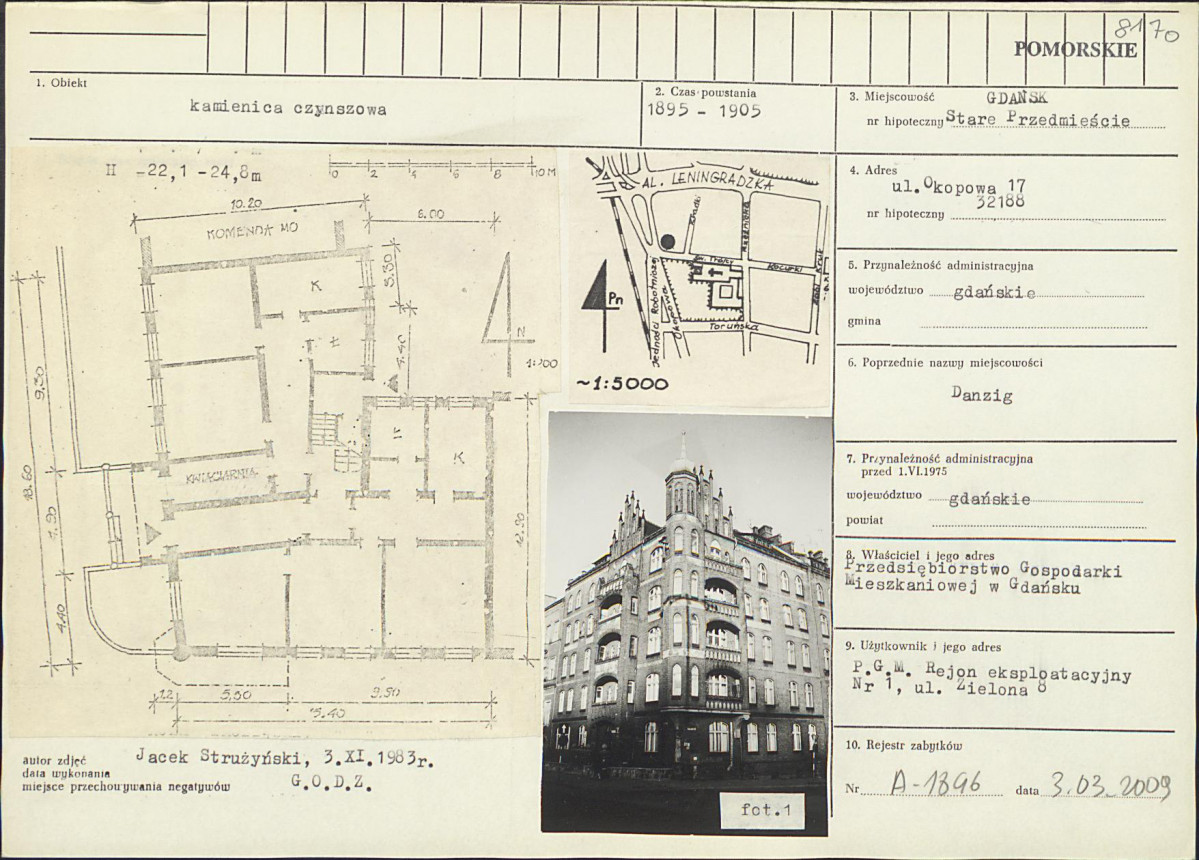 8170
POMORSKIE
1. Obiekt
kamienica czynszowa
2. Czas powstania
1895 - 1905
3. Miejscowość GDAŃSK
nr hipoteczny Stare Przedmieście
4. Adres
ul. Okopowa 17
32188
nr hipoteczny
5. Przynależność administracyjna
województwo gdańskie
gmina
6. Poprzednie nazwy miejscowości
Danzig
7. Przynależność administracyjna
przed 1.VI.1975
województwo gdańskie
powiat
8. Właściciel i jego adres
Przedsiębiorstwo Gospodarki
Mieszkaniowej w Gdańsku
9. Użytkownik i jego adres
P.G.M. Rejon eksploatacyjny
Nr 1, ul. Zielona 8
10. Rejestr zabytków
Nr A-1896 data 3.03.2009
H -22,1 -24,8m
0 2 4 6 8 10 M
10.20
8.00
KOMENDA MO
K
3.30
N
1:200
9.30
KWIACIARNIA
K
18.60
12.90
4.40
1.2
5.50
9.50
15.40
AL. LENINGRADZKA
Kładki
Rzeźnicka
Św. Trójcy
Kocurki
Jedności Robotniczej
Okopowa
Toruńska
Pn
~1:5000
fot.1
autor zdjęć
data wykonania
miejsce przechowywania negatywów
Jacek Strużyński, 3.XI.1983r.
G.O.D.Z.